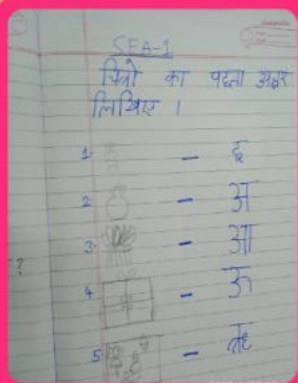 SEA-1
चित्रो का पहला अक्षर
लिखिए ।
1. - ई
2. - अ
3. - आ
4. - ऊ
5. - ऋ
?